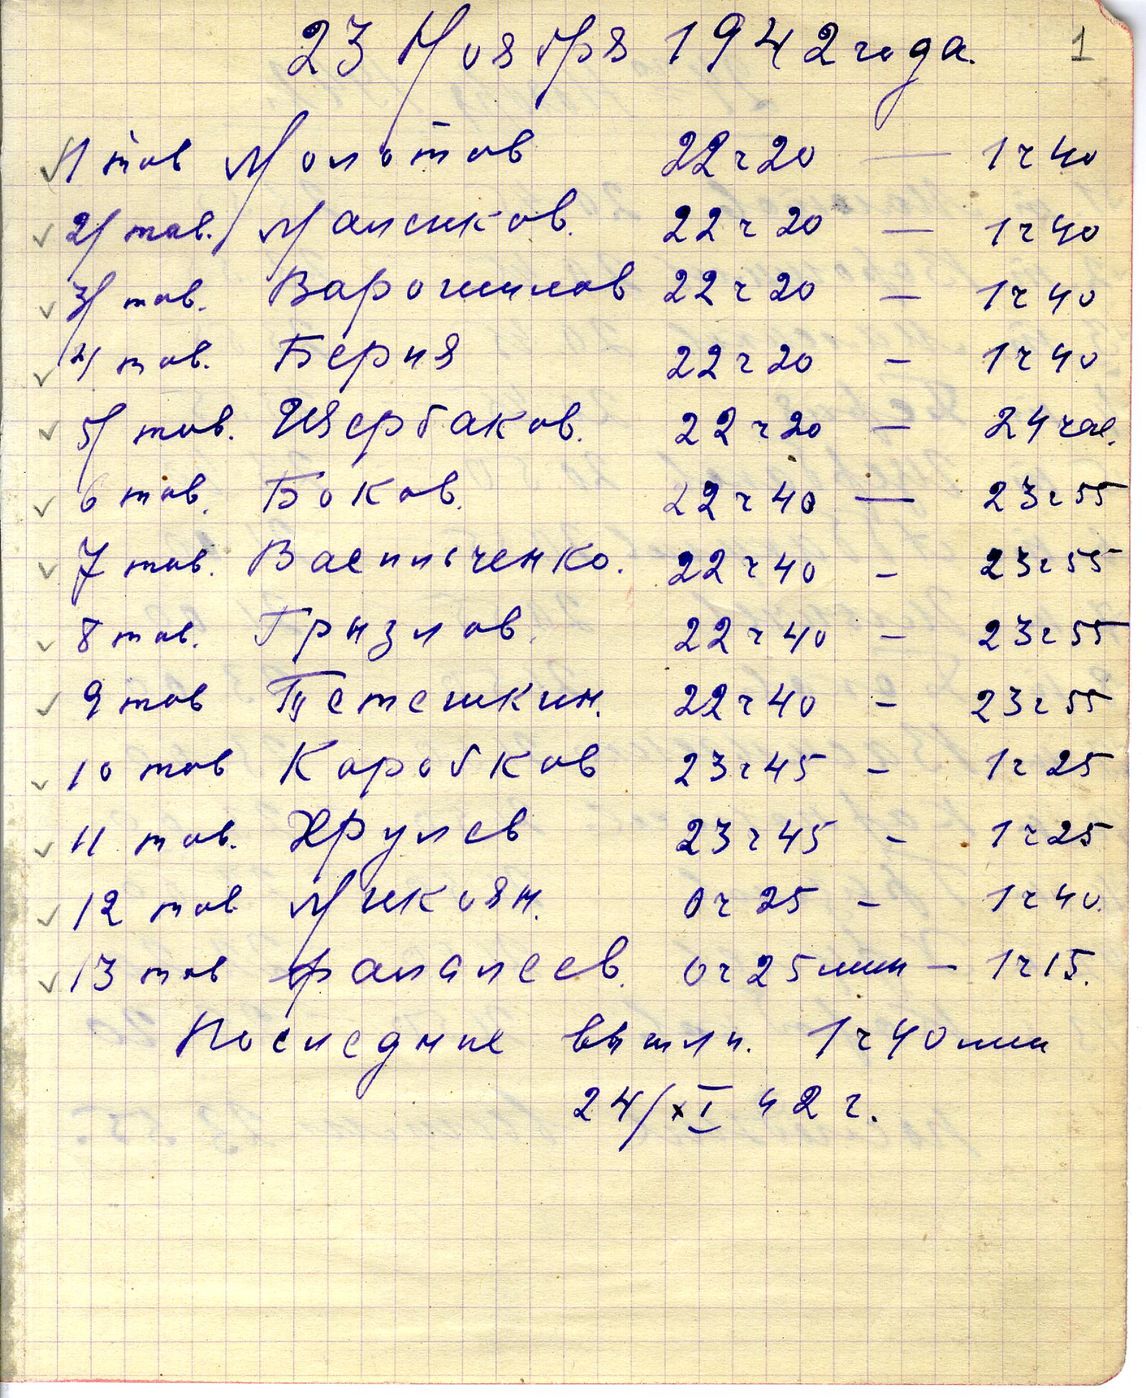 23 Ноября 1942 года. 1
1 тов Молотов 22 ч 20 — 1 ч 40
2/ тов. Маленков. 22 ч 20 — 1 ч 40
3/ тов. Варошилов 22 ч 20 — 1 ч 40
4/ тов. Берия 22 ч 20 — 1 ч 40
5/ тов. Щербаков. 22 ч 20 — 24 час.
6 тов. Боков. 22 ч 40 — 23 ч 55
7 тов. Васильченко. 22 ч 40 — 23 ч 55
8 тов. Грызлов. 22 ч 40 — 23 ч 55
9 тов Тетешкин. 22 ч 40 — 23 ч 55
10 тов Коробков 23 ч 45 — 1 ч 25
11 тов. Хрулев 23 ч 45 — 1 ч 25
12 тов Микоян. 0 ч 25 — 1 ч 40.
13 тов Фалалеев. 0 ч 25 мин — 1 ч 15.
Последние вышли. 1 ч 40 мин
24/XI 42 г.